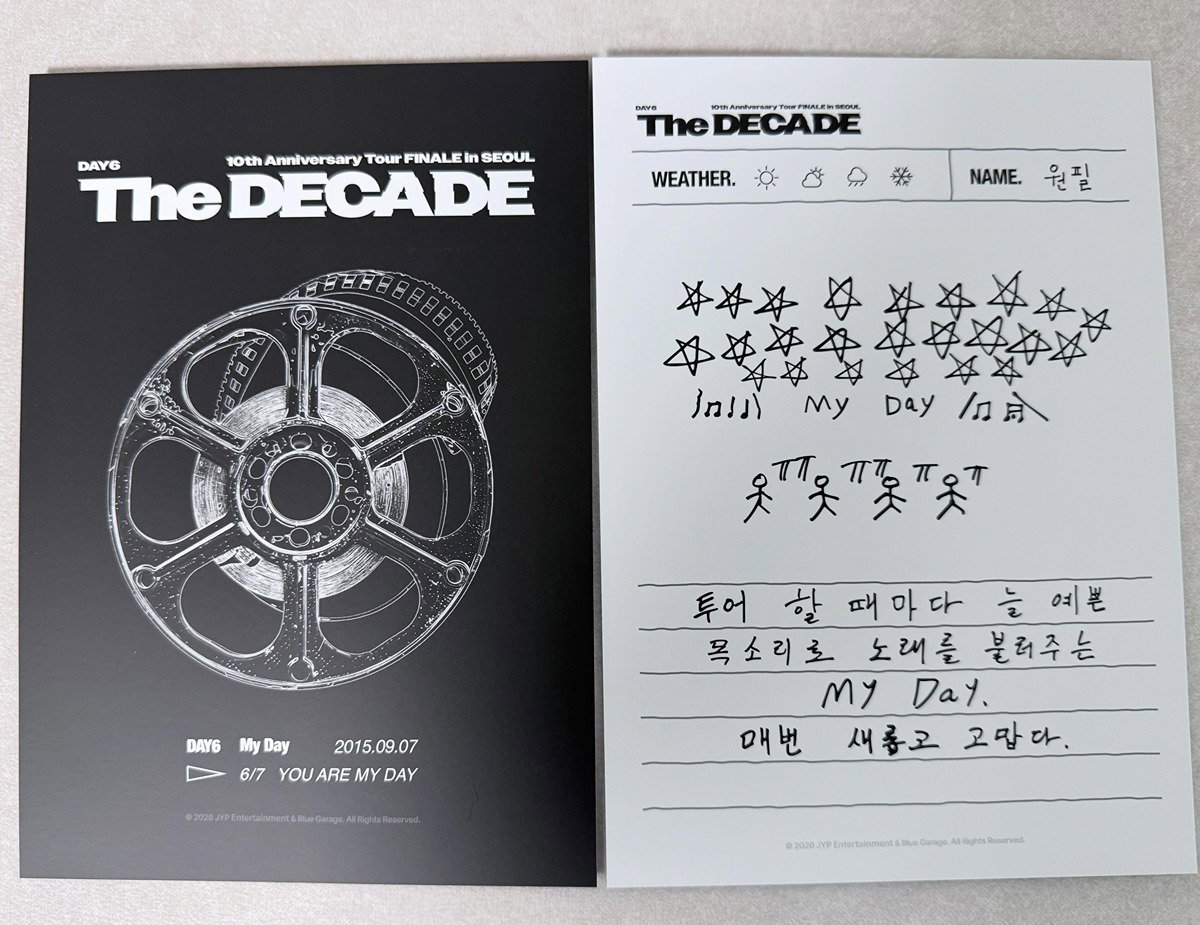 DAY6 10th Anniversary Tour FINALE in SEOUL
The DECADE
DAY6 My Day 2015.09.07
6/7 YOU ARE MY DAY
© 2026 JYP Entertainment & Blue Garage. All Rights Reserved.
DAY6 10th Anniversary Tour FINALE in SEOUL
The DECADE
WEATHER. NAME. 원필
My Day
ㅠㅠ ㅠㅠ ㅠ ㅠ
투어 할 때마다 늘 예쁜
목소리로 노래를 불러주는
My Day.
매번 새롭고 고맙다.
© 2026 JYP Entertainment & Blue Garage. All Rights Reserved.